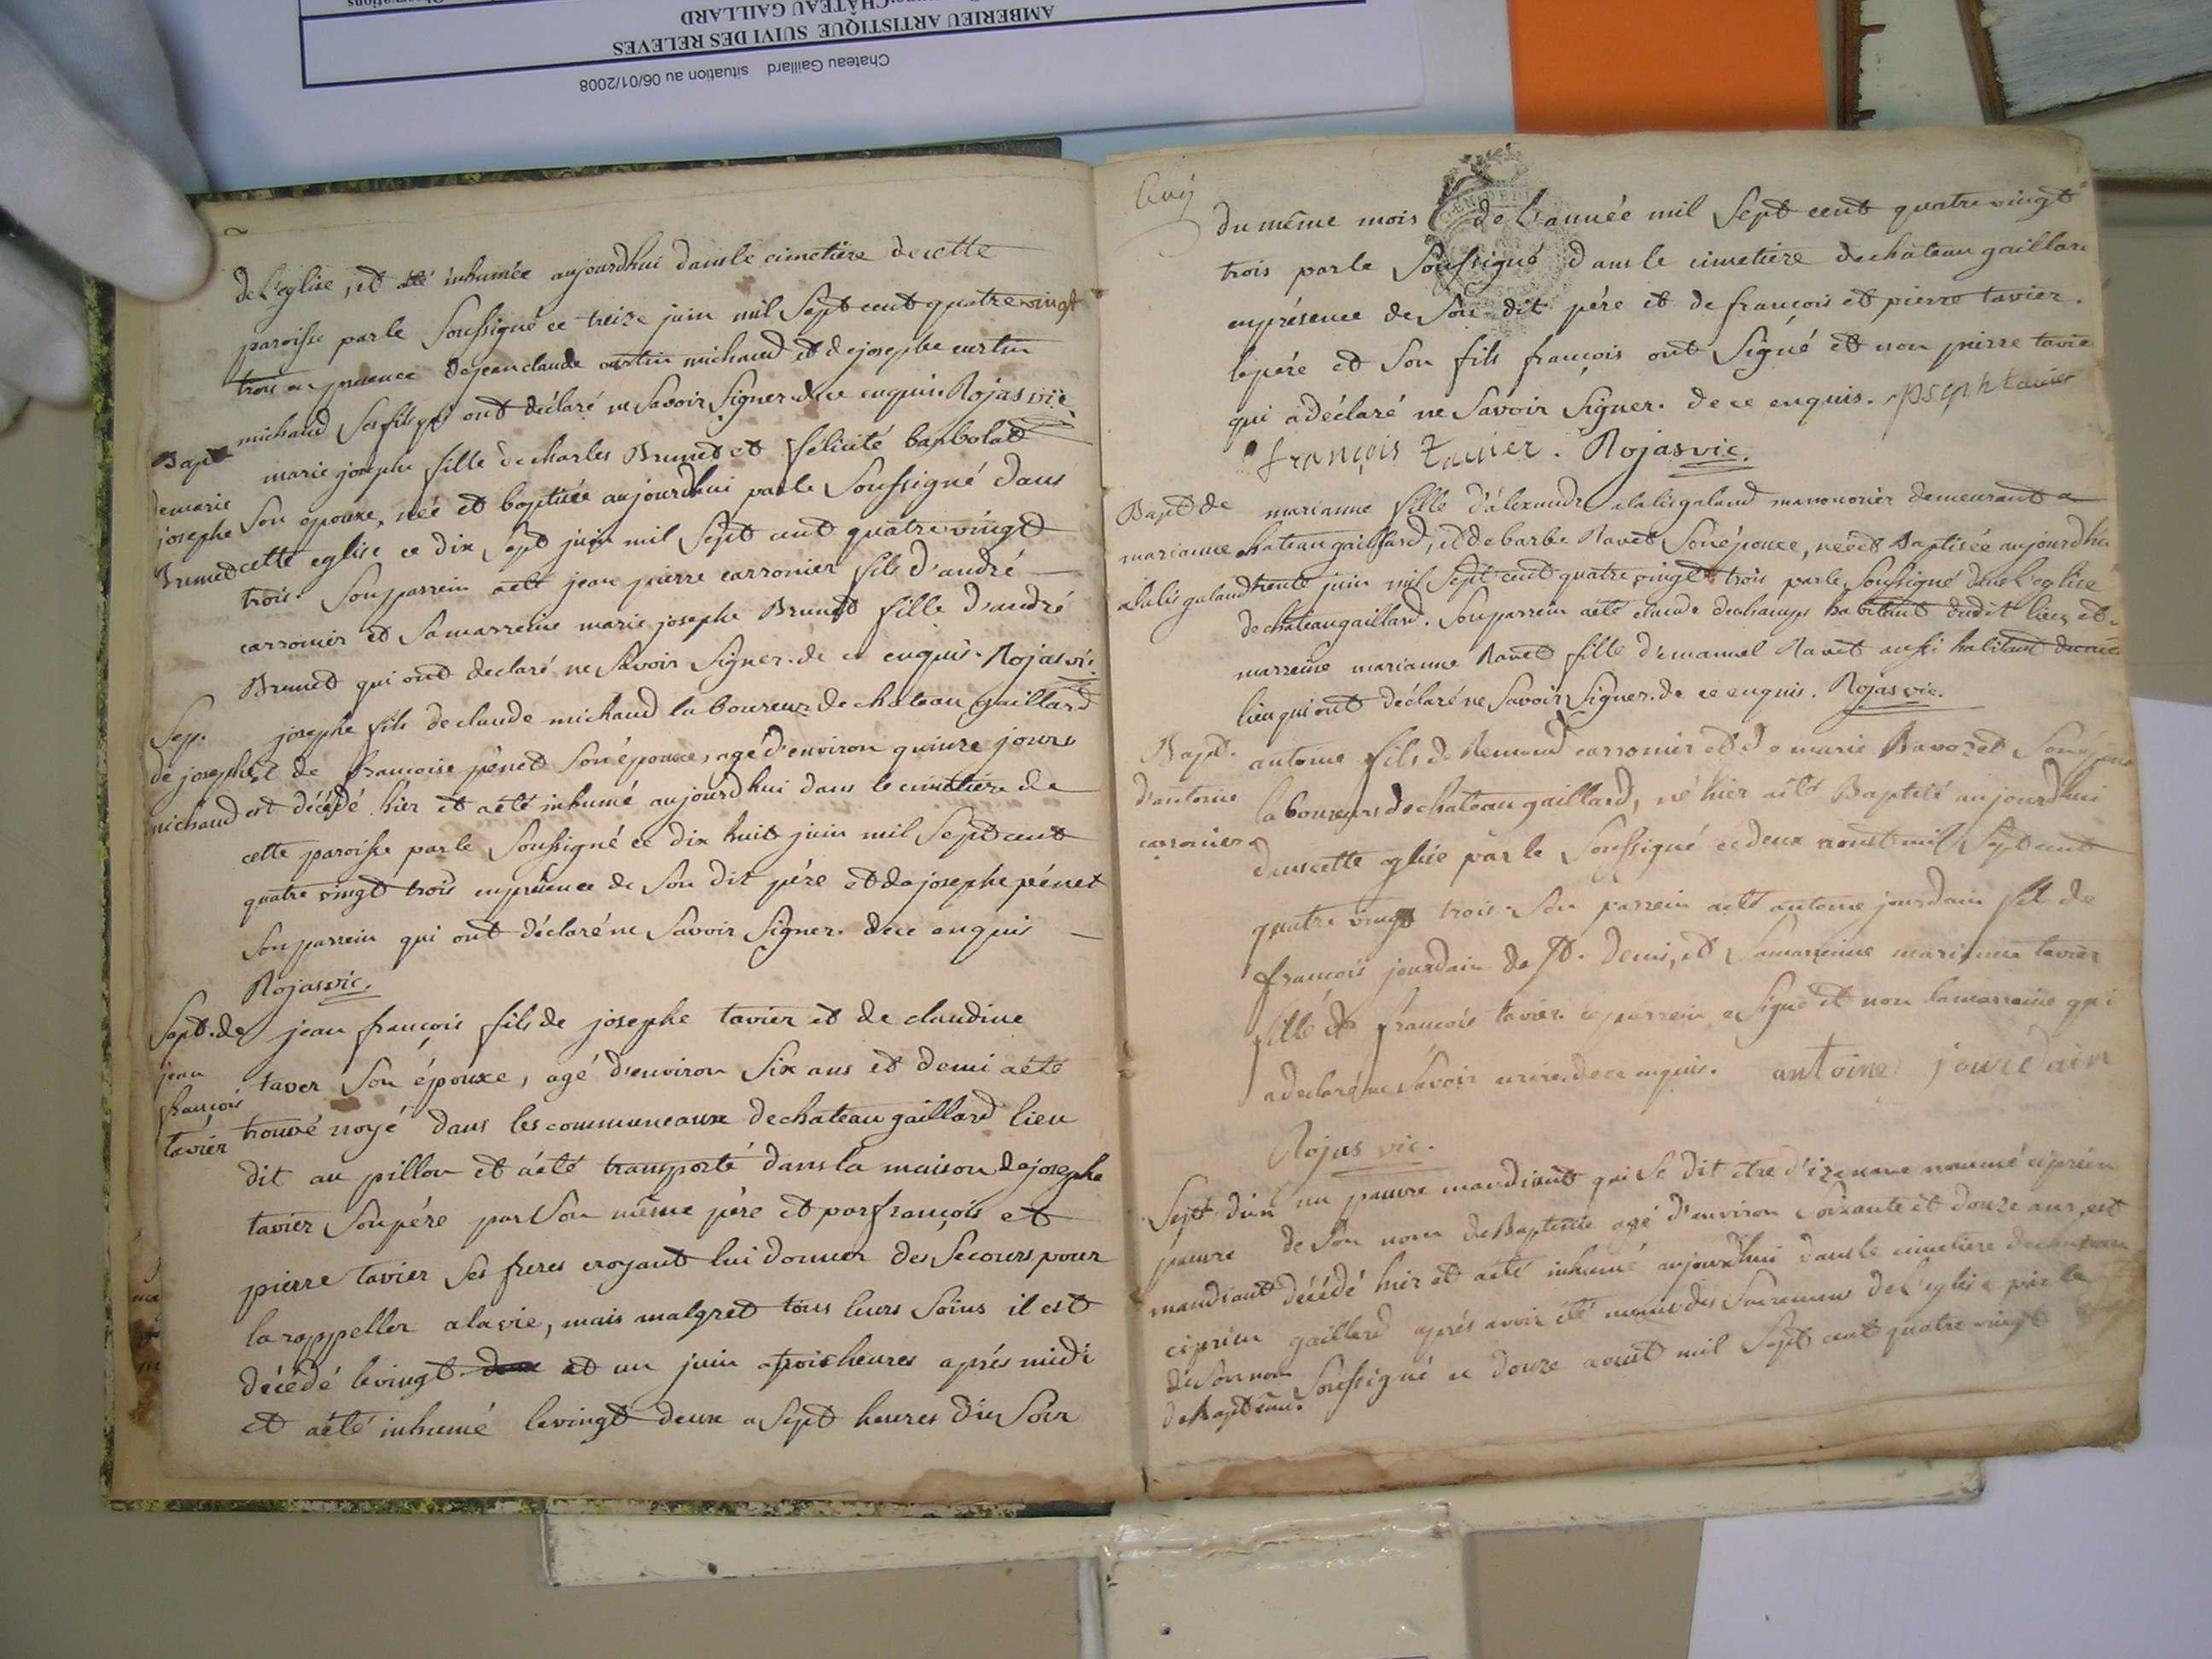 CHÂTEAU GAILLARD
AMBERIEU ARTISTIQUE SUIVI DES RELEVES
Chateau Gaillard situation au 06/01/2008
de l'eglise, et été inhumée aujourdhui dans le cimetiere de cette
paroisse par le soussigné ce treize juin mil sept cent quatre vingt
trois en presence de jean claude curtin michaud et de josephe curtin
michaud ses fils qui ont déclaré ne savoir signer de ce enquis Rojas vic.
Bapt marie josephe fille de charles Brunet et félicité
de marie
josephe son epouxe, née et baptisée aujourdhui par le soussigné dans
Brunet cette eglise ce dix sept juin mil sept cent quatre vingt
trois. son parrein a été jean pierre carronier fils d'andré
carronier et sa marreine marie josephe Brunet fille d'andré
Brunet qui ont declaré ne savoir signer de ce enquis. Rojas vic.
Sep. josephe fils de claude michaud laboureur de chateau gaillard
de josephe et de francoise pénet son épouxe, agé d'environ quinze jours
michaud est décédé hier et a été inhumé aujourdhui dans le cimetiere de
cette paroisse par le soussigné ce dix huit juin mil sept cent
quatre vingt trois en présence de son dit pére et de josephe pénet
son parrein qui ont déclaré ne savoir signer. de ce enquis
Rojas vic.
Sept. de jean françois fils de josephe tavier et de claudine
jean taver son épouxe, agé d'environ six ans et demi a été
françois
tavier trouvé noyé dans les communeaux de chateau gaillard lieu
dit au pillon et a été transporté dans la maison de josephe
tavier son pére par son même pére et par françois et
pierre tavier ses freres croyant lui donner des secours pour
la rappeller a la vie, mais malgret tous leurs soins il est
décédé le vingt et un juin a trois heures aprés midi
et a été inhumé le vingt deux a sept heures du soir
du même mois de l'année mil sept cent quatre vingt
trois par le soussigné dans le cimetiere de château gaillard
en présence de son dit pére et de françois et pierre tavier.
le pére et son fils françois ont signé et non pierre tavier
qui a déclaré ne savoir signer. de ce enquis. joseph tavier
françois tavier. Rojas vic.
Bapt de marianne fille d'alexandre alalis galand manouvrier demeurant a
marianne chateau gaillard, et de barbe Ravet son épouxe, née et Baptisée aujourdhui
alalis galand trente juin mil sept cent quatre vingt trois par le soussigné dans l'eglise
de château gaillard. son parrein a été claude dechamps habitant dudit lieu et
marreine marianne Ravet fille d'emanuel Ravet aussi habitant du même
lieu qui ont déclaré ne savoir signer. de ce enquis. Rojas vic.
Bapt. antoine fils de Remond carronier et de marie Bavozet son épouxe
d'antoine laboureurs de chateau gaillard, né hier a été Baptisé aujourdhui
carronier dans cette eglise par le soussigné ce deux aoust mil sept cent
quatre vingt trois. son parrein a été antoine jourdain fil de
francois jourdain de st. denis, et sa marreine marianne tavier
fille de francois tavier. le parrein a signé et non la marreine qui
a declaré ne savoir ecrire. de ce enquis. antoine jourdain
Rojas vic.
Sept d'un un pauvre mandiant qui se dit etre d'izenave nommé ciprien
pauvre de son nom de Baptême agé d'environ soixante et douze ans, est
mandiant décédé hier et a été inhumé aujourdhui dans le cimetiere de chateau
ciprien gaillard aprés avoir été muni des sacremens de l'eglise par le
de son nom
de Baptême. soussigné ce douze aoust mil sept cent quatre vingt